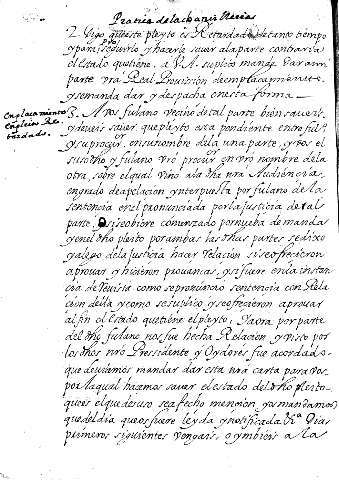 Pratica de la chanzilleria
2. Digo que este pleyto es Retardado de tanto tiempo
y para seguirlo y hacerlo saver a la parte contraria
el estado que tiene. a V.A. suplico mande dar a mi
parte vra Real Provission de emplacamiento
y se manda dar y despacha en esta forma
Enplacamiento
en pleito Re-
tardado.
3. A vos fulano vecino de tal parte bien saveis
y deveis saver que pleyto esta pendiente entre ful.º
y su procur.or en su nombre de la una parte, y vos el
susodho y fulano vro procur.or en vro nombre de la
otra, sobre el qual vino a la dha nra Audiencia,
en grado de apelacion ynterpuesta por fulano de la
sentencia en el pronunciada por la Justicia de tal
parte. O si se obiere comenzado por nueba demanda
y en el dho pleito por ambas las dhas partes se dixo
y alego de la Justicia hacer Relacion si se ofrecieron
a provar y hicieron provancas, y si fuere en la instan
cia de Revista como se pronuncio sentencia con Rela
cion della y como se suplico y se ofrecieron a provar
al fin el estado que tiene el pleyto. Y aora por parte
del dho fulano nos fue hecha Relacion, y visto por
los dhos nro Presidente y Oydores fue acordado
que deviamos mandar dar esta nra carta para vos.
por la qual hacemos saver el estado del dho Pleito
que es el que de suso se a fecho mencion y os mandamos
que del dia que os fuere leyda y notificada ha.ª dias
primeros siguientes vengais, o ymbieis a la